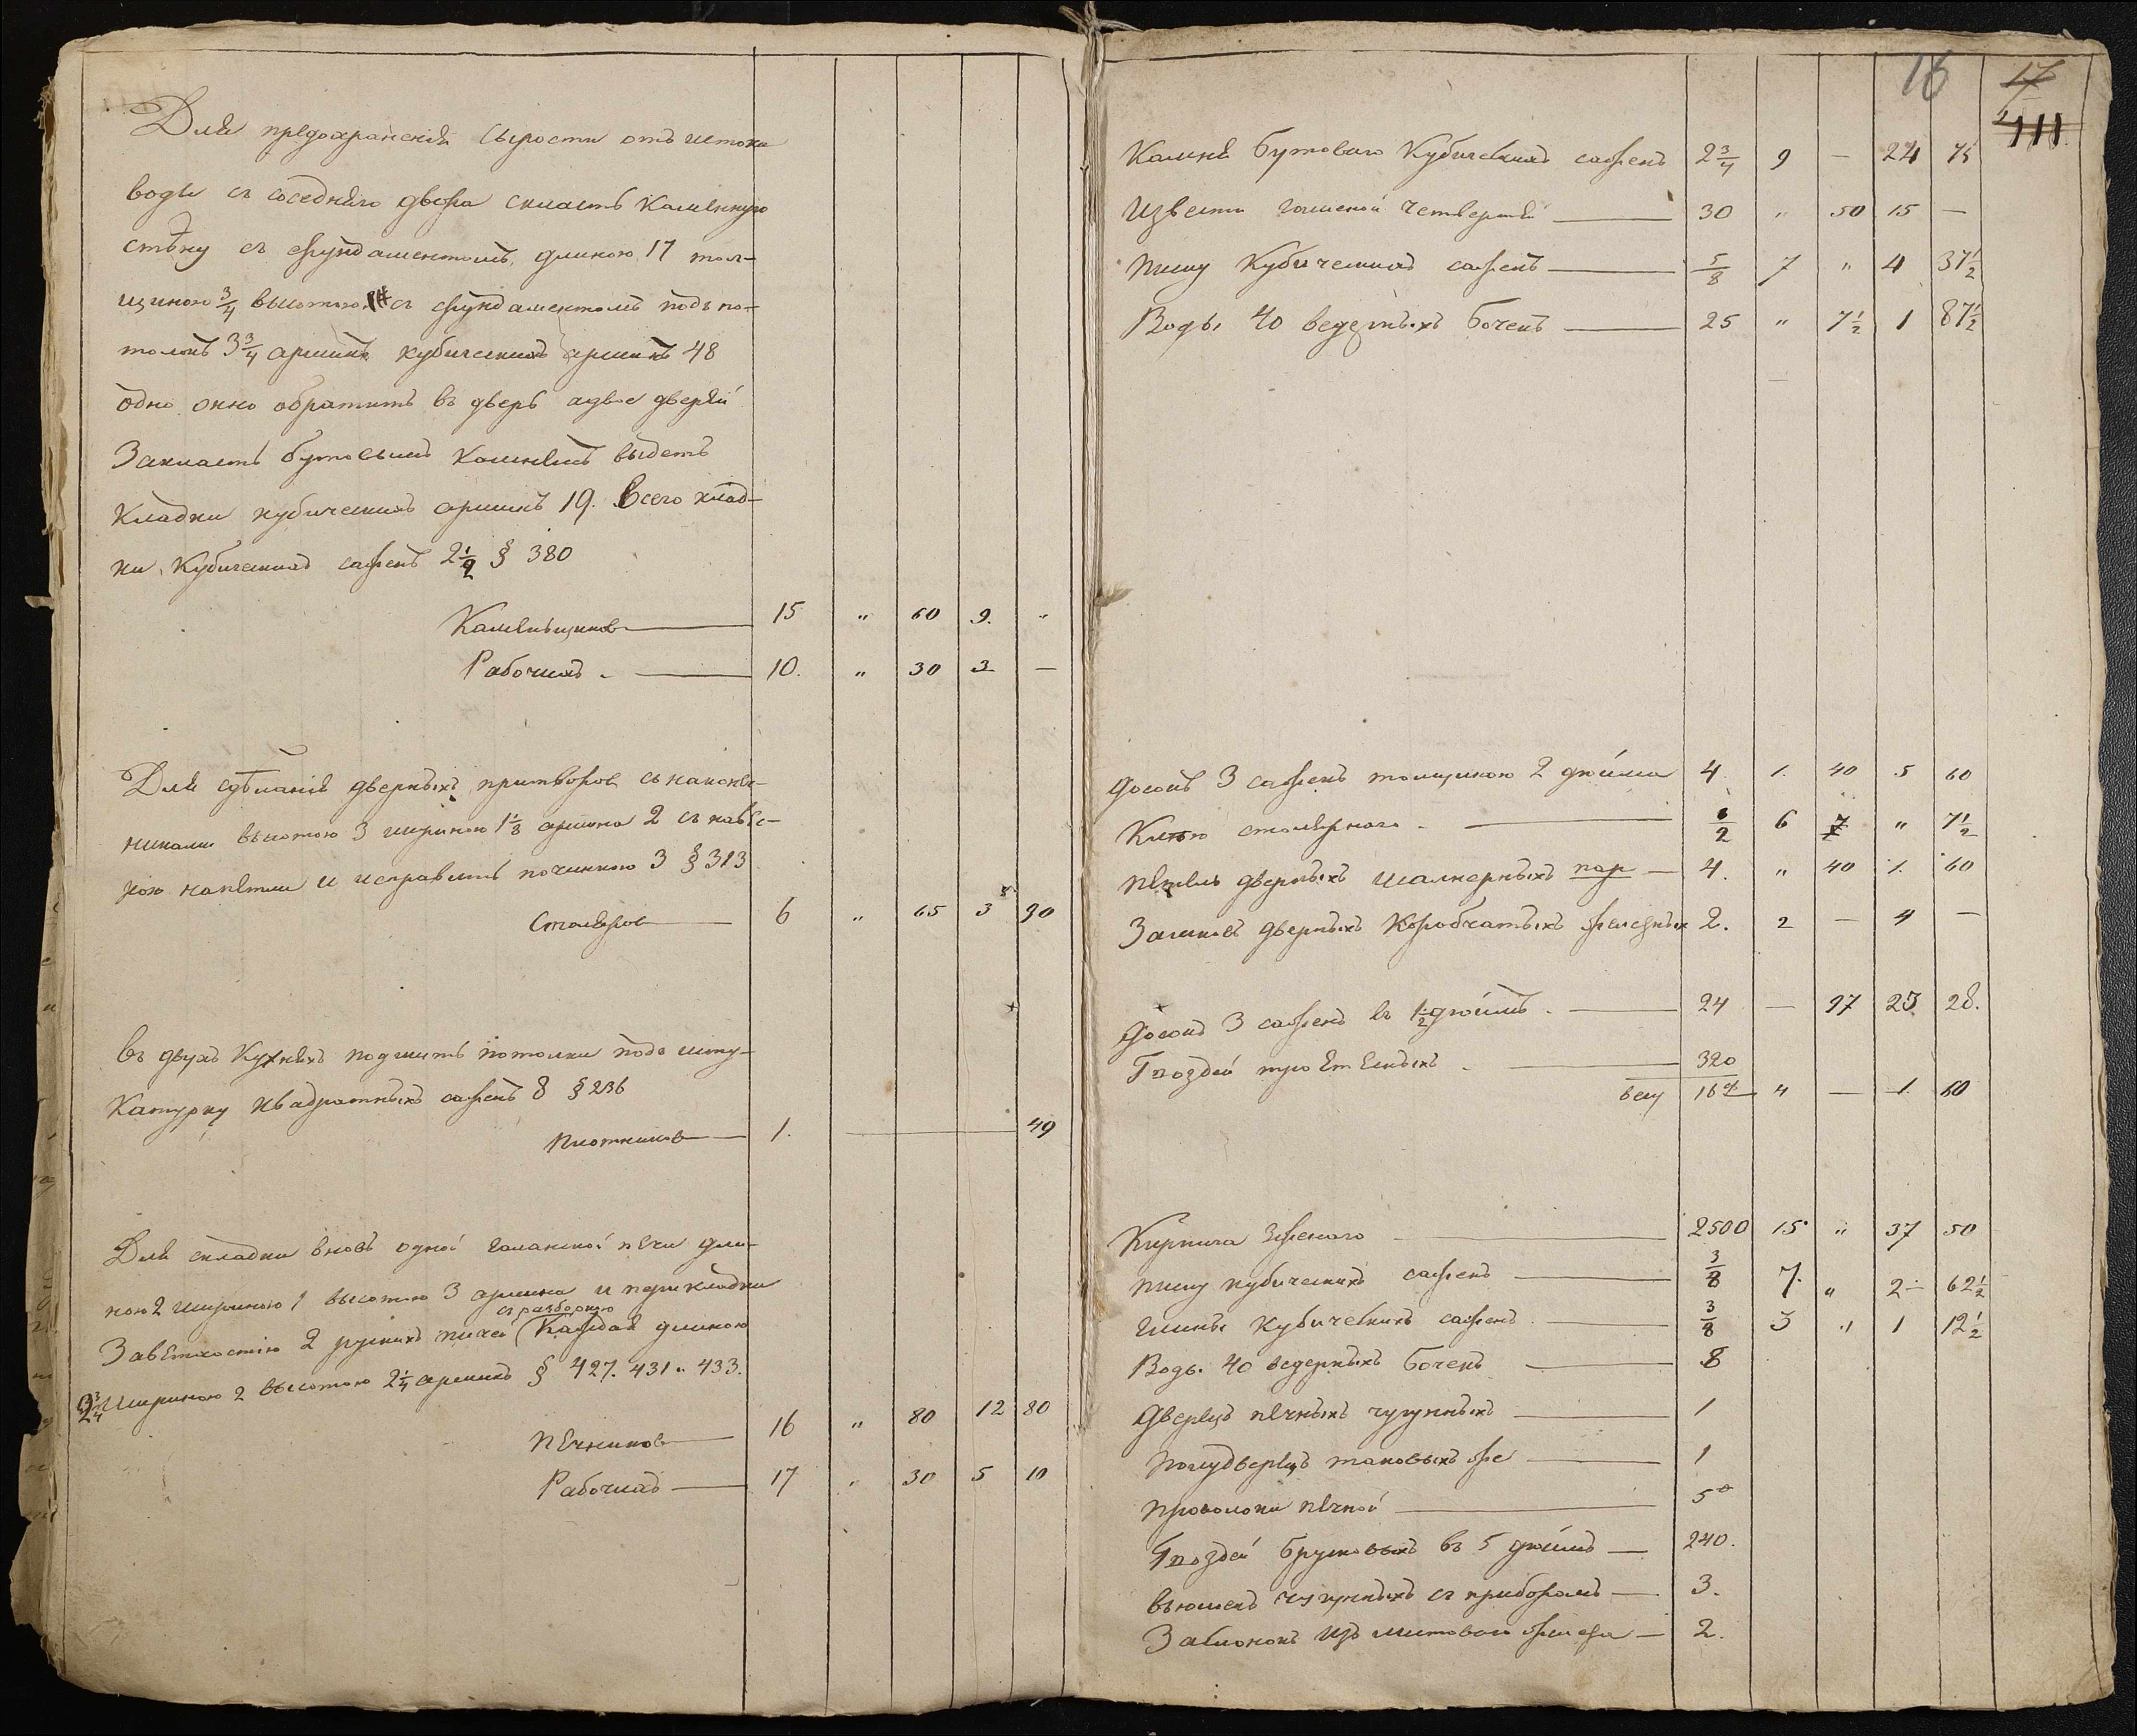 Для предохранения сырости отъ истока
воды съ соседняго двора скласть Каменную
стѣну съ фундаментомъ, длиною 17 тол-
щиною 3/4 высотою съ фундаментомъ подъ по-
толокъ 3 3/4 аршинъ кубическихъ аршинъ 48
одно окно обратить въ дверь а двое дверей
Закласть бутовымъ Каменемъ выдетъ
Кладки кубическихъ аршинъ 19. Всего клад-
ки Кубическихъ саженъ 2 1/2 § 380
Каменьщиковъ 15 " 60 9. "
Рабочихъ . 10. " 30 3 —
Для сдѣлания дверныхъ притворовъ съ наконе-
никами высотою 3 шириною 1 1/8 аршина 2 съ навѣс-
кою на петли и исправить починкою 3 § 313
Столяровъ 6 " 65 3 90
въ двухъ Кухняхъ подшить потолки подъ шту-
Катурку квадратныхъ саженъ 8 § 236
Плотниковъ 1. 49
Для складки вновь одной галанской печи дли-
ною 2 шириною 1 высотою 3 аршина и перекладки
съ разборкою
За ветхостию 2 рускихъ печей Каждая длиною
2 3/4 шириною 2 высотою 2 1/4 аршинъ § 427. 431 и 433.
Печниковъ 16 " 80 12 80
Рабочихъ 17 " 30 5 10
16 17
111
Камня бутоваго Кубическихъ саженъ 2 3/4 9 — 24 75
Извести гашеной четвертей 30 " 50 15 —
Песку Кубическихъ саженъ 5/8 7 " 4 37 1/2
Воды 40 ведерныхъ бочекъ 25 " 7 1/2 1 87 1/2
Досокъ 3 саженъ толщиною 2 дюйма 4 1. 40 5 60
Клею столярнаго . 1/2 6 " 7 1/2
Петель дверныхъ шалнерныхъ пар 4. " 40 1. 60
Замковъ дверныхъ Коробчатыхъ 2. 2 — 4 —
Досокъ 3 саженъ въ 1 1/2 дюймъ . 24 — 97 23 28.
Гвоздей троетесныхъ . 320
весу 16 4 — 1. 60
Кирпича 2500 15 " 37 50
Песку кубическихъ саженъ 3/8 7. " 2 62 1/2
Глины Кубическихъ саженъ 3/8 3 " 1 12 1/2
Воды 40 ведерныхъ бочекъ 8
Дверецъ печныхъ чугунныхъ 1
Полудверецъ таковыхъ же 1
Проволоки печной 5
Гвоздей брусковыхъ въ 5 дюймъ 240.
вьюшекъ чугунныхъ съ приборомъ 3.
Заслонокъ изъ листоваго железа 2.